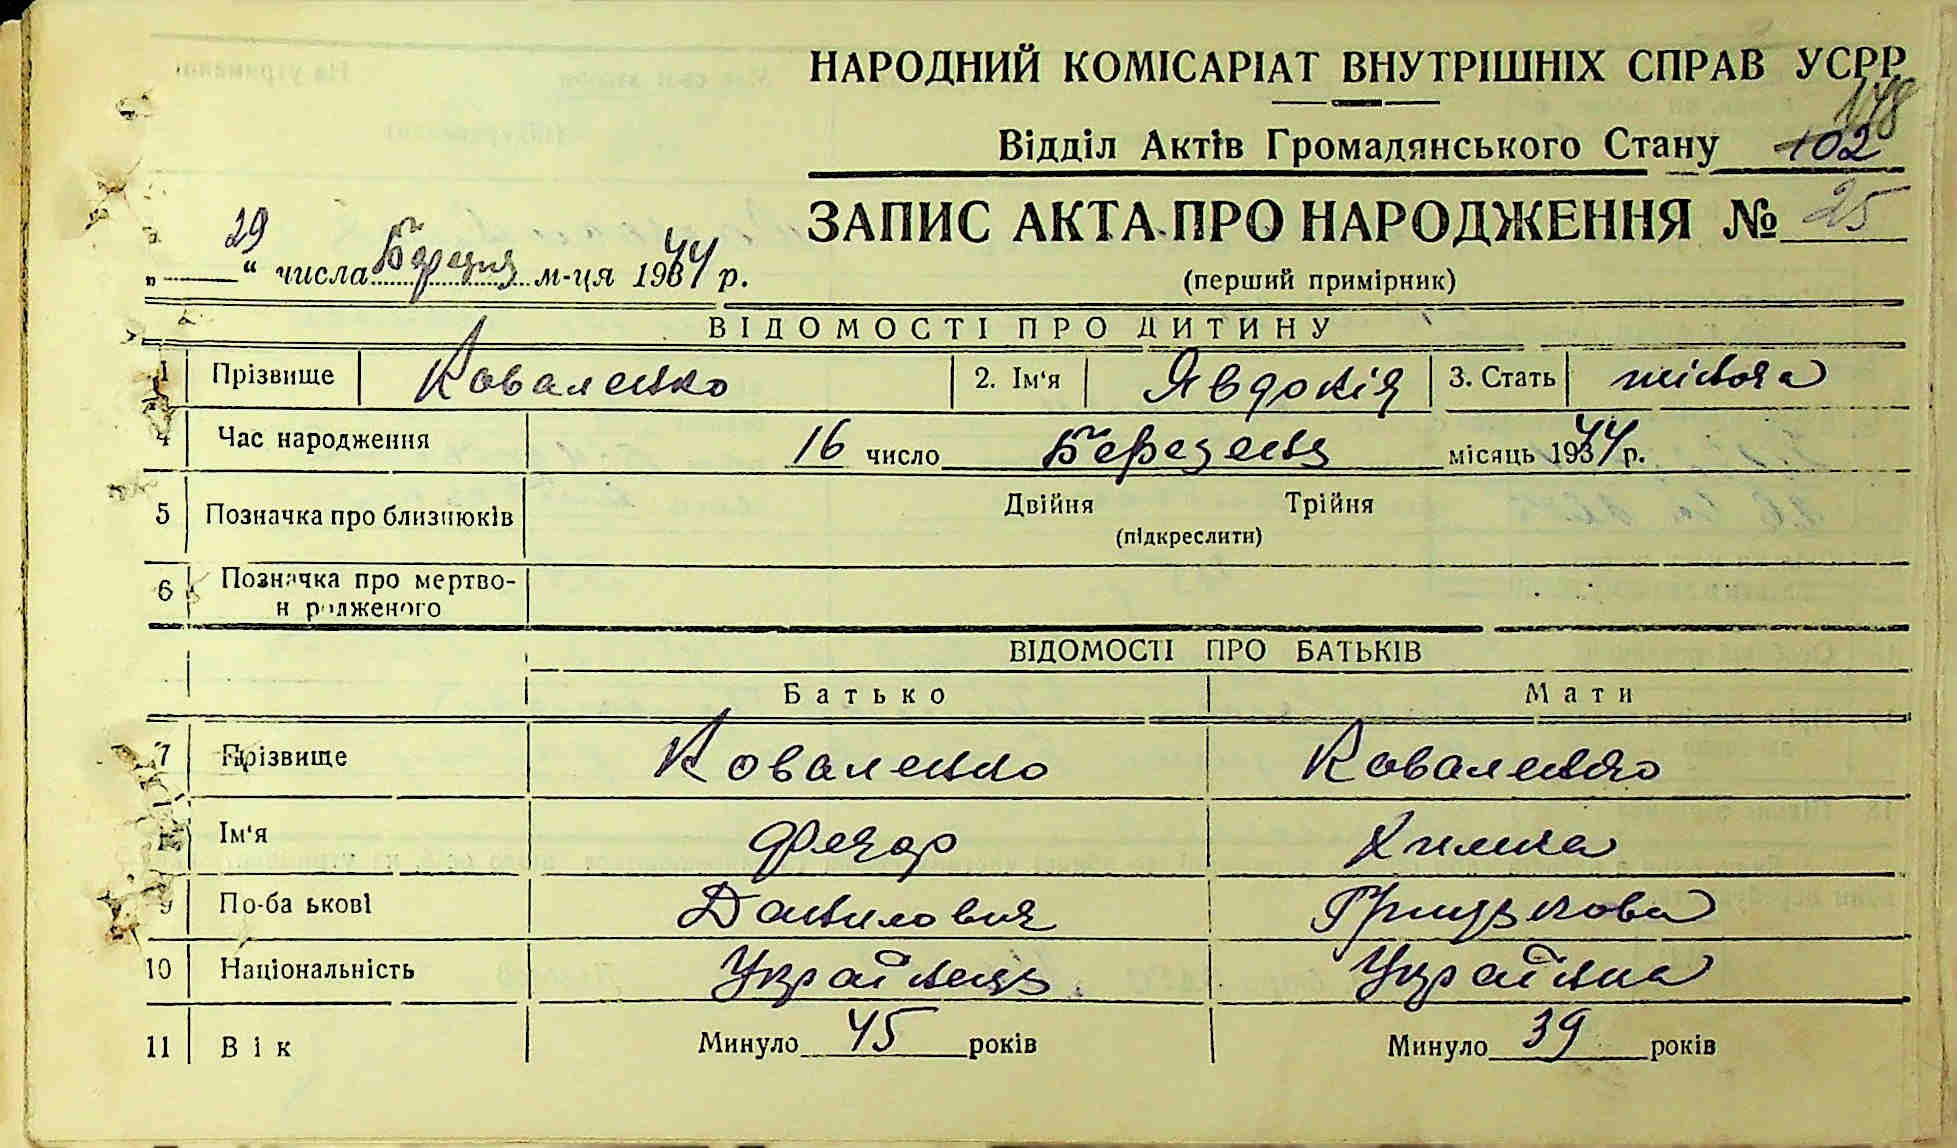 НАРОДНИЙ КОМІСАРІАТ ВНУТРІШНІХ СПРАВ УСРР
148
Відділ Актів Громадянського Стану 102
ЗАПИС АКТА ПРО НАРОДЖЕННЯ № 25
„ 29 “ числа Березня м-ця 1944 р.
(перший примірник)
ВІДОМОСТІ ПРО ДИТИНУ
1 Прізвище Коваленко 2. Ім'я Явдокія 3. Стать жіноча
4 Час народження 16 число Березень місяць 1944 р.
5 Позначка про близнюків Двійня Трійня
(підкреслити)
6 Позначка про мертво-
народженого
ВІДОМОСТІ ПРО БАТЬКІВ
Батько Мати
7 Прізвище Коваленко Коваленко
8 Ім'я Федор Химка
9 По-батькові Данилович Грицькова
10 Національність Українець Українка
11 Вік Минуло 45 років Минуло 39 років